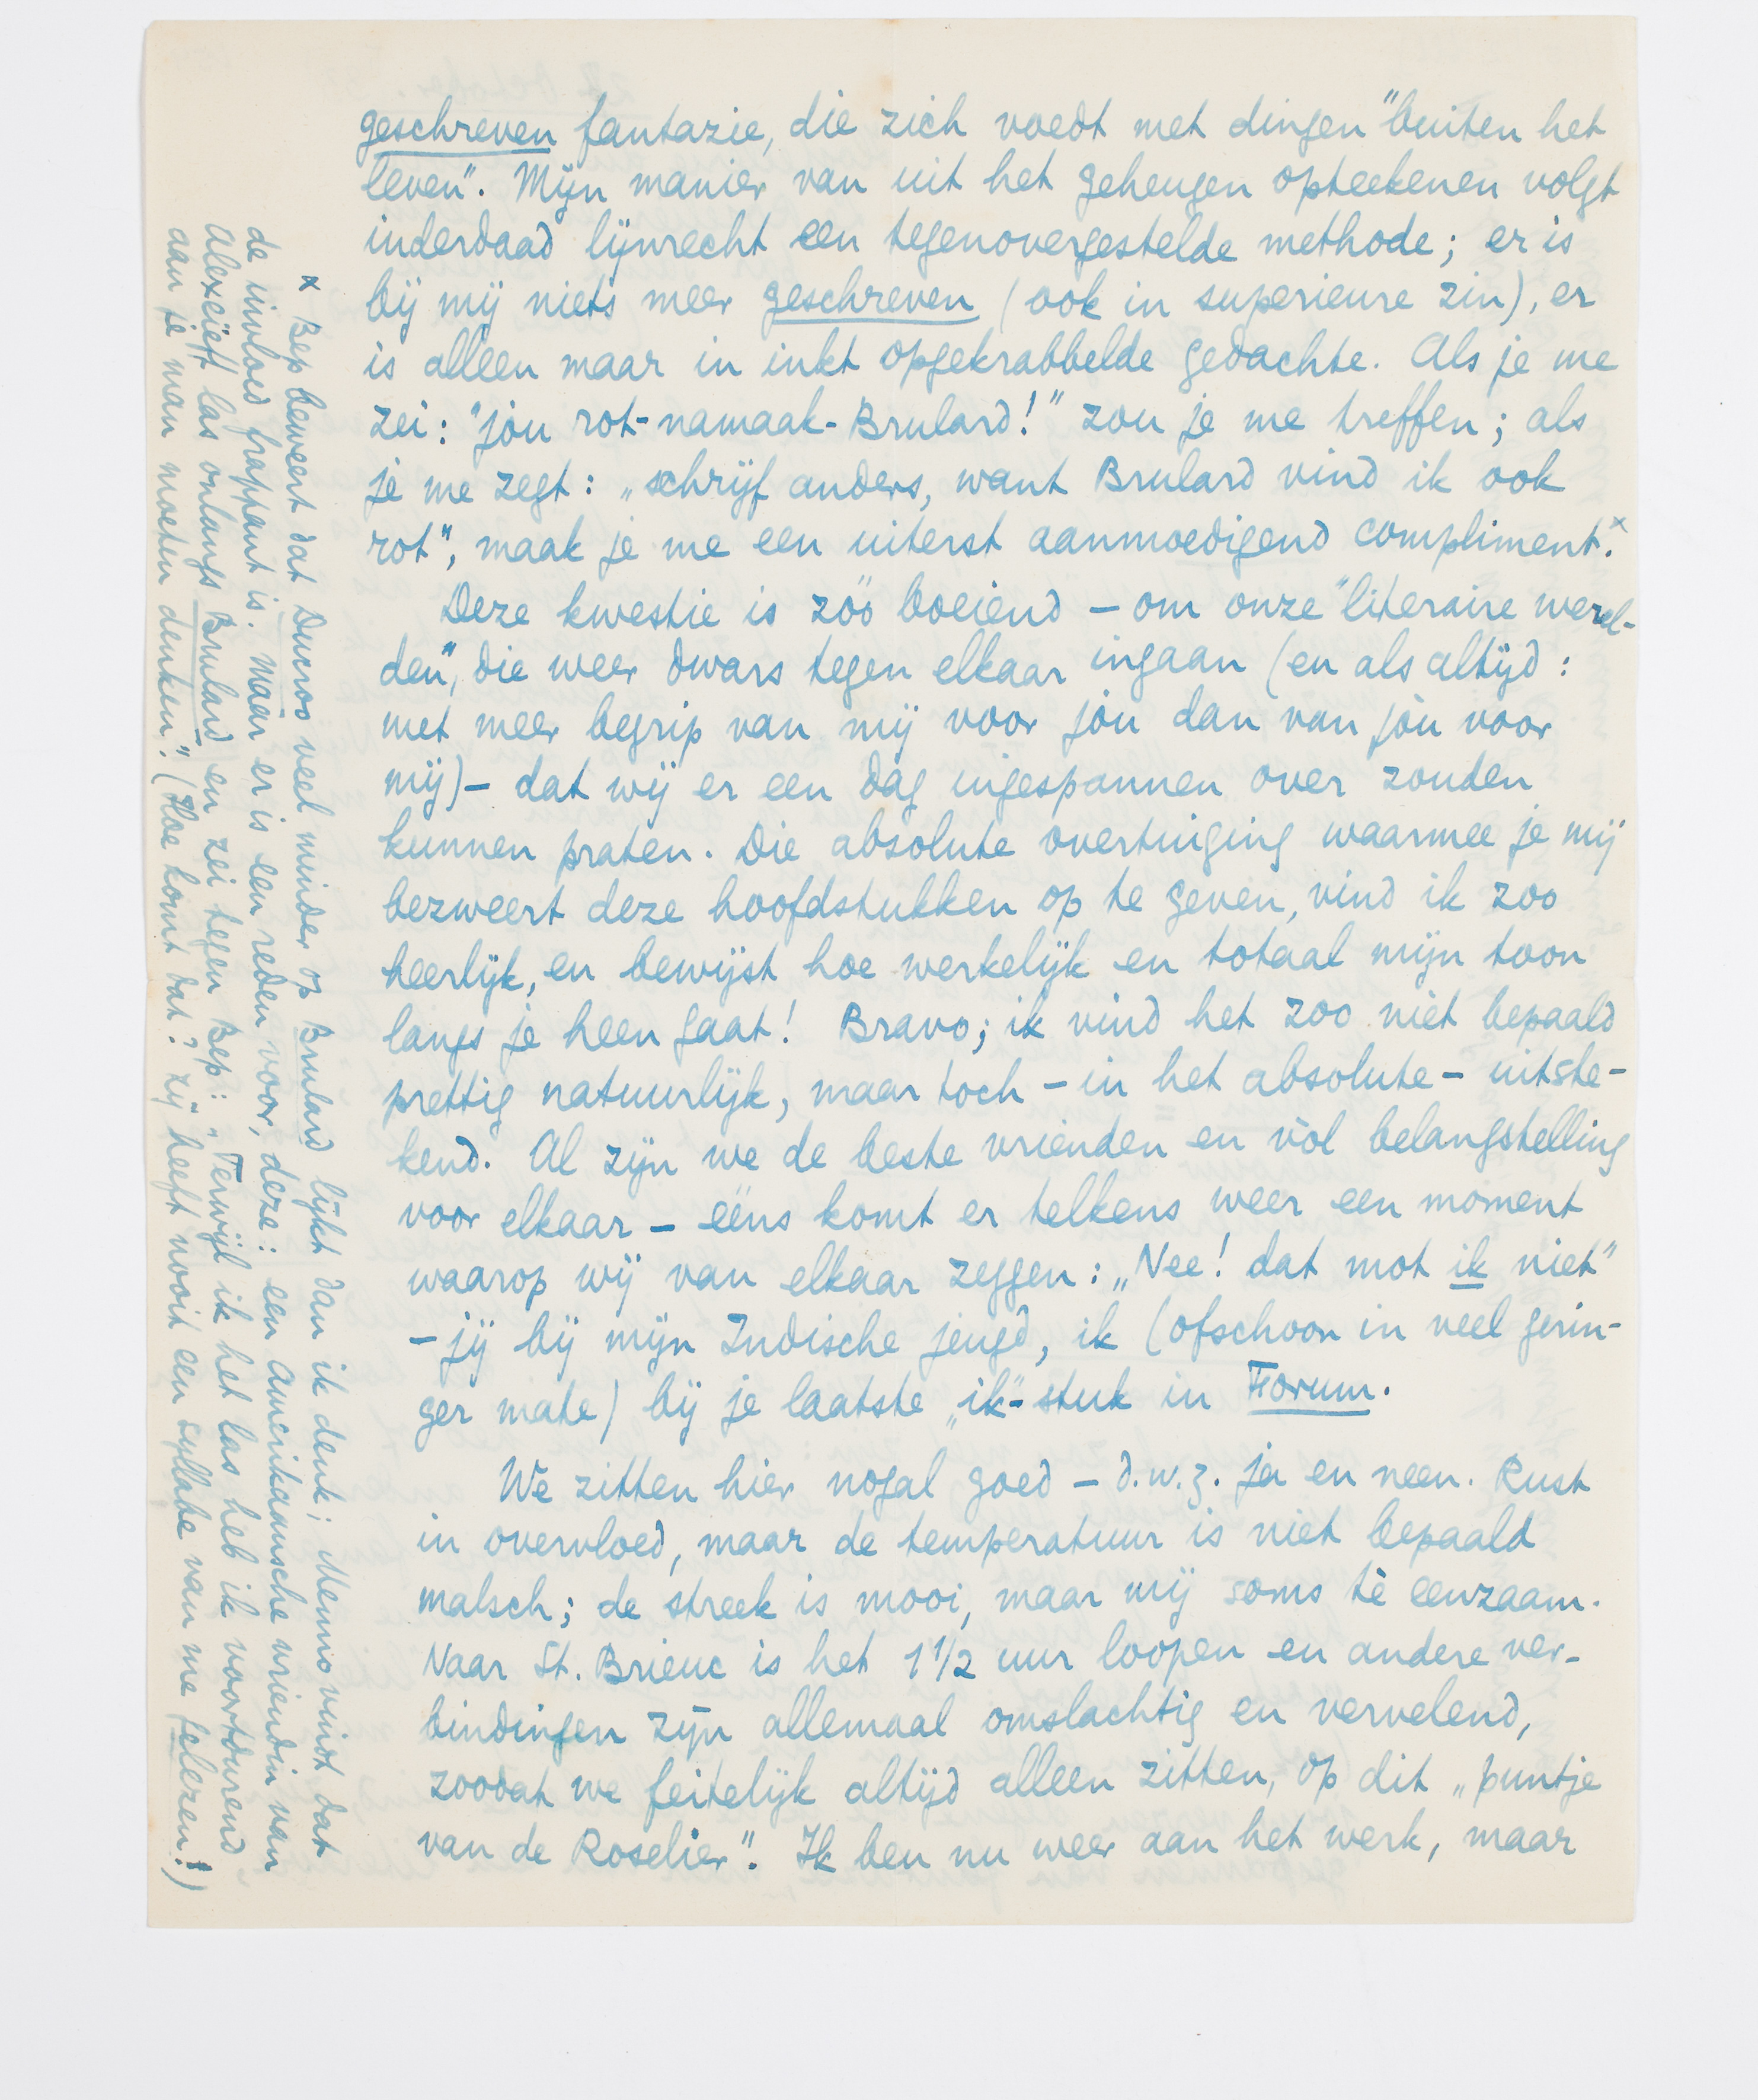 geschreven fantazie, die zich voedt met dingen "buiten het
leven". Mijn manier van uit het geheugen opteekenen volgt
inderdaad lijnrecht een tegenovergestelde methode; er is
bij mij niets meer geschreven (ook in superieure zin), er
is alleen maar in inkt opgekrabbelde gedachte. Als je me
zei: "jòu rot-namaak-Brulard!" zou je me treffen; als
je me zegt: „schrijf anders, want Brulard vind ik ook
rot", maak je me een uiterst aanmoedigend compliment.x
Deze kwestie is zóó boeiend — om onze "literaire werel-
den", die weer dwars tegen elkaar ingaan (en als altijd:
met meer begrip van mij voor jòu dan van jòu voor
mij) — dat wij er een dag ingespannen over zouden
kunnen praten. Die absolute overtuiging waarmee je mij
bezweert deze hoofdstukken op te geven, vind ik zoo
heerlijk, en bewijst hoe werkelijk en totaal mijn toon
langs je heen gaat! Bravo; ik vind het zoo niet bepaald
prettig natuurlijk, maar toch — in het absolute — uitste-
kend. Al zijn we de beste vrienden en vòl belangstelling
voor elkaar — ééns komt er telkens weer een moment
waarop wij van elkaar zeggen: „Nee! dat mot ik niet"
— jij bij mijn Indische jeugd, ik (ofschoon in veel gerin-
ger mate) bij je laatste „ik"-stuk in Forum.
We zitten hier nogal goed — d.w.z. ja en neen. Rust
in overvloed, maar de temperatuur is niet bepaald
malsch; de streek is mooi, maar mij soms tè eenzaam.
Naar St. Brieuc is het 1 1/2 uur loopen en andere ver-
bindingen zijn allemaal omslachtig en vervelend,
zoodat we feitelijk altijd alleen zitten, op dit „puntje
van de Roselier". Ik ben nu weer aan het werk, maar
x Bep beweert dat Ducroo veel minder op Brulard lijkt dan ik denk; Menno vindt dat
de invloed frappant is. Maar er is een reden voor, deze: een Amerikaansche vriendin van
Alexeieff las onlangs Brulard en zei tegen Bep: „Terwijl ik het las heb ik voortdurend
aan je man moeten denken." (Hoe komt dat? zij heeft nooit een syllabe van me gelezen!)